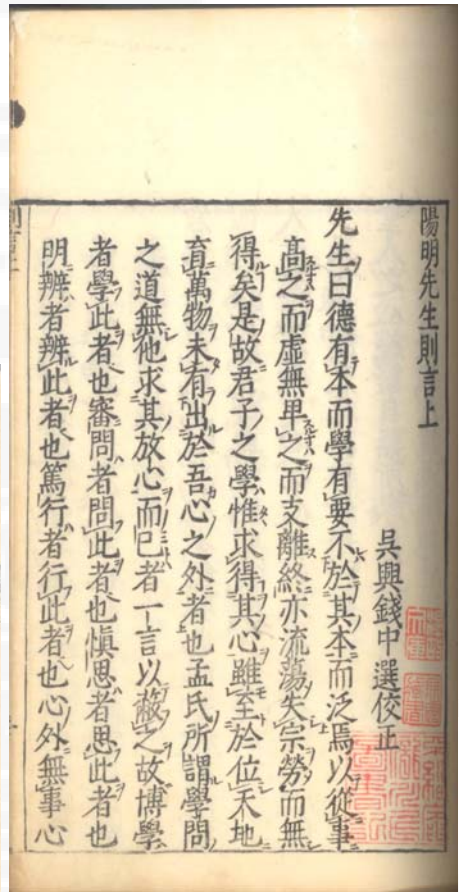 陽明先生則言上
吳興錢中選挍正
先生曰德有本而學有要不於其本而泛焉以從事
高之而虛無卑之而支離終亦流蕩失宗勞而無
得矣是故君子之學惟求得其心雖至於位天地
育萬物未有出於吾心之外者也孟氏所謂學問
之道無他求其放心而已者一言以蔽之故博學
者學此者也審問者問此者也愼思者思此者也
明辨者辨此者也篤行者行此者也心外無事心